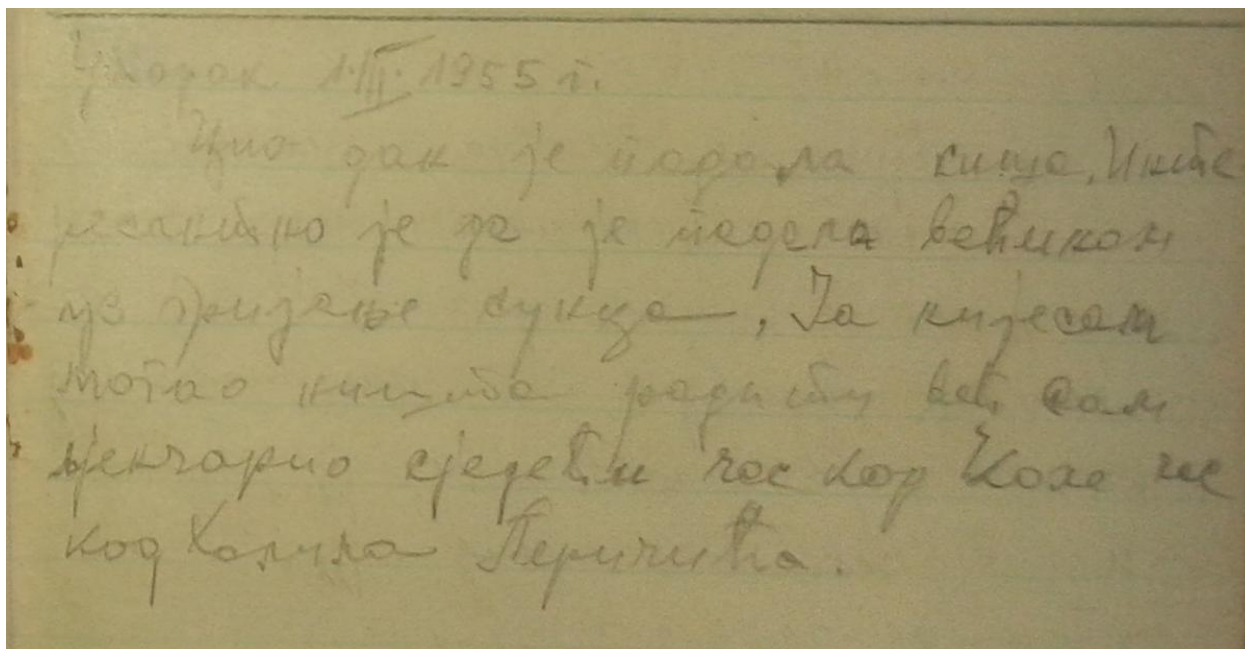 Уторак 1.III.1955 г.
Цио дан је падала киша. Инте
ресантно је да је падала већином
уз гријање сунца. Ја нијесам
могао ништа радити већ сам
сједећи час код час
код Халила Перичића.